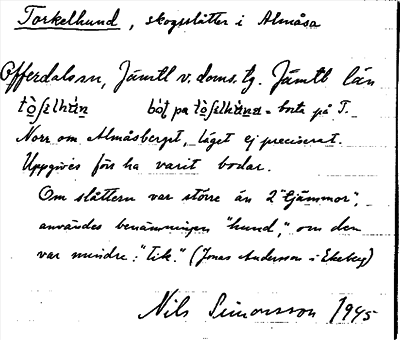 Torkelhund, skogsslåtter i Almåsa
Offerdals sn, Jämtl. v. doms. tg. Jämtl. län
bort på T.
Norr om Almåsberget, läget ej preciserat.
Uppgives förr ha varit bodar.
Om slåttern var större än 2 "tjämmor",
användes benämningen "hund," om den
var mindre: "tik." (Jonas Andersson i Ekeberg)
Nils Simonsson 1945